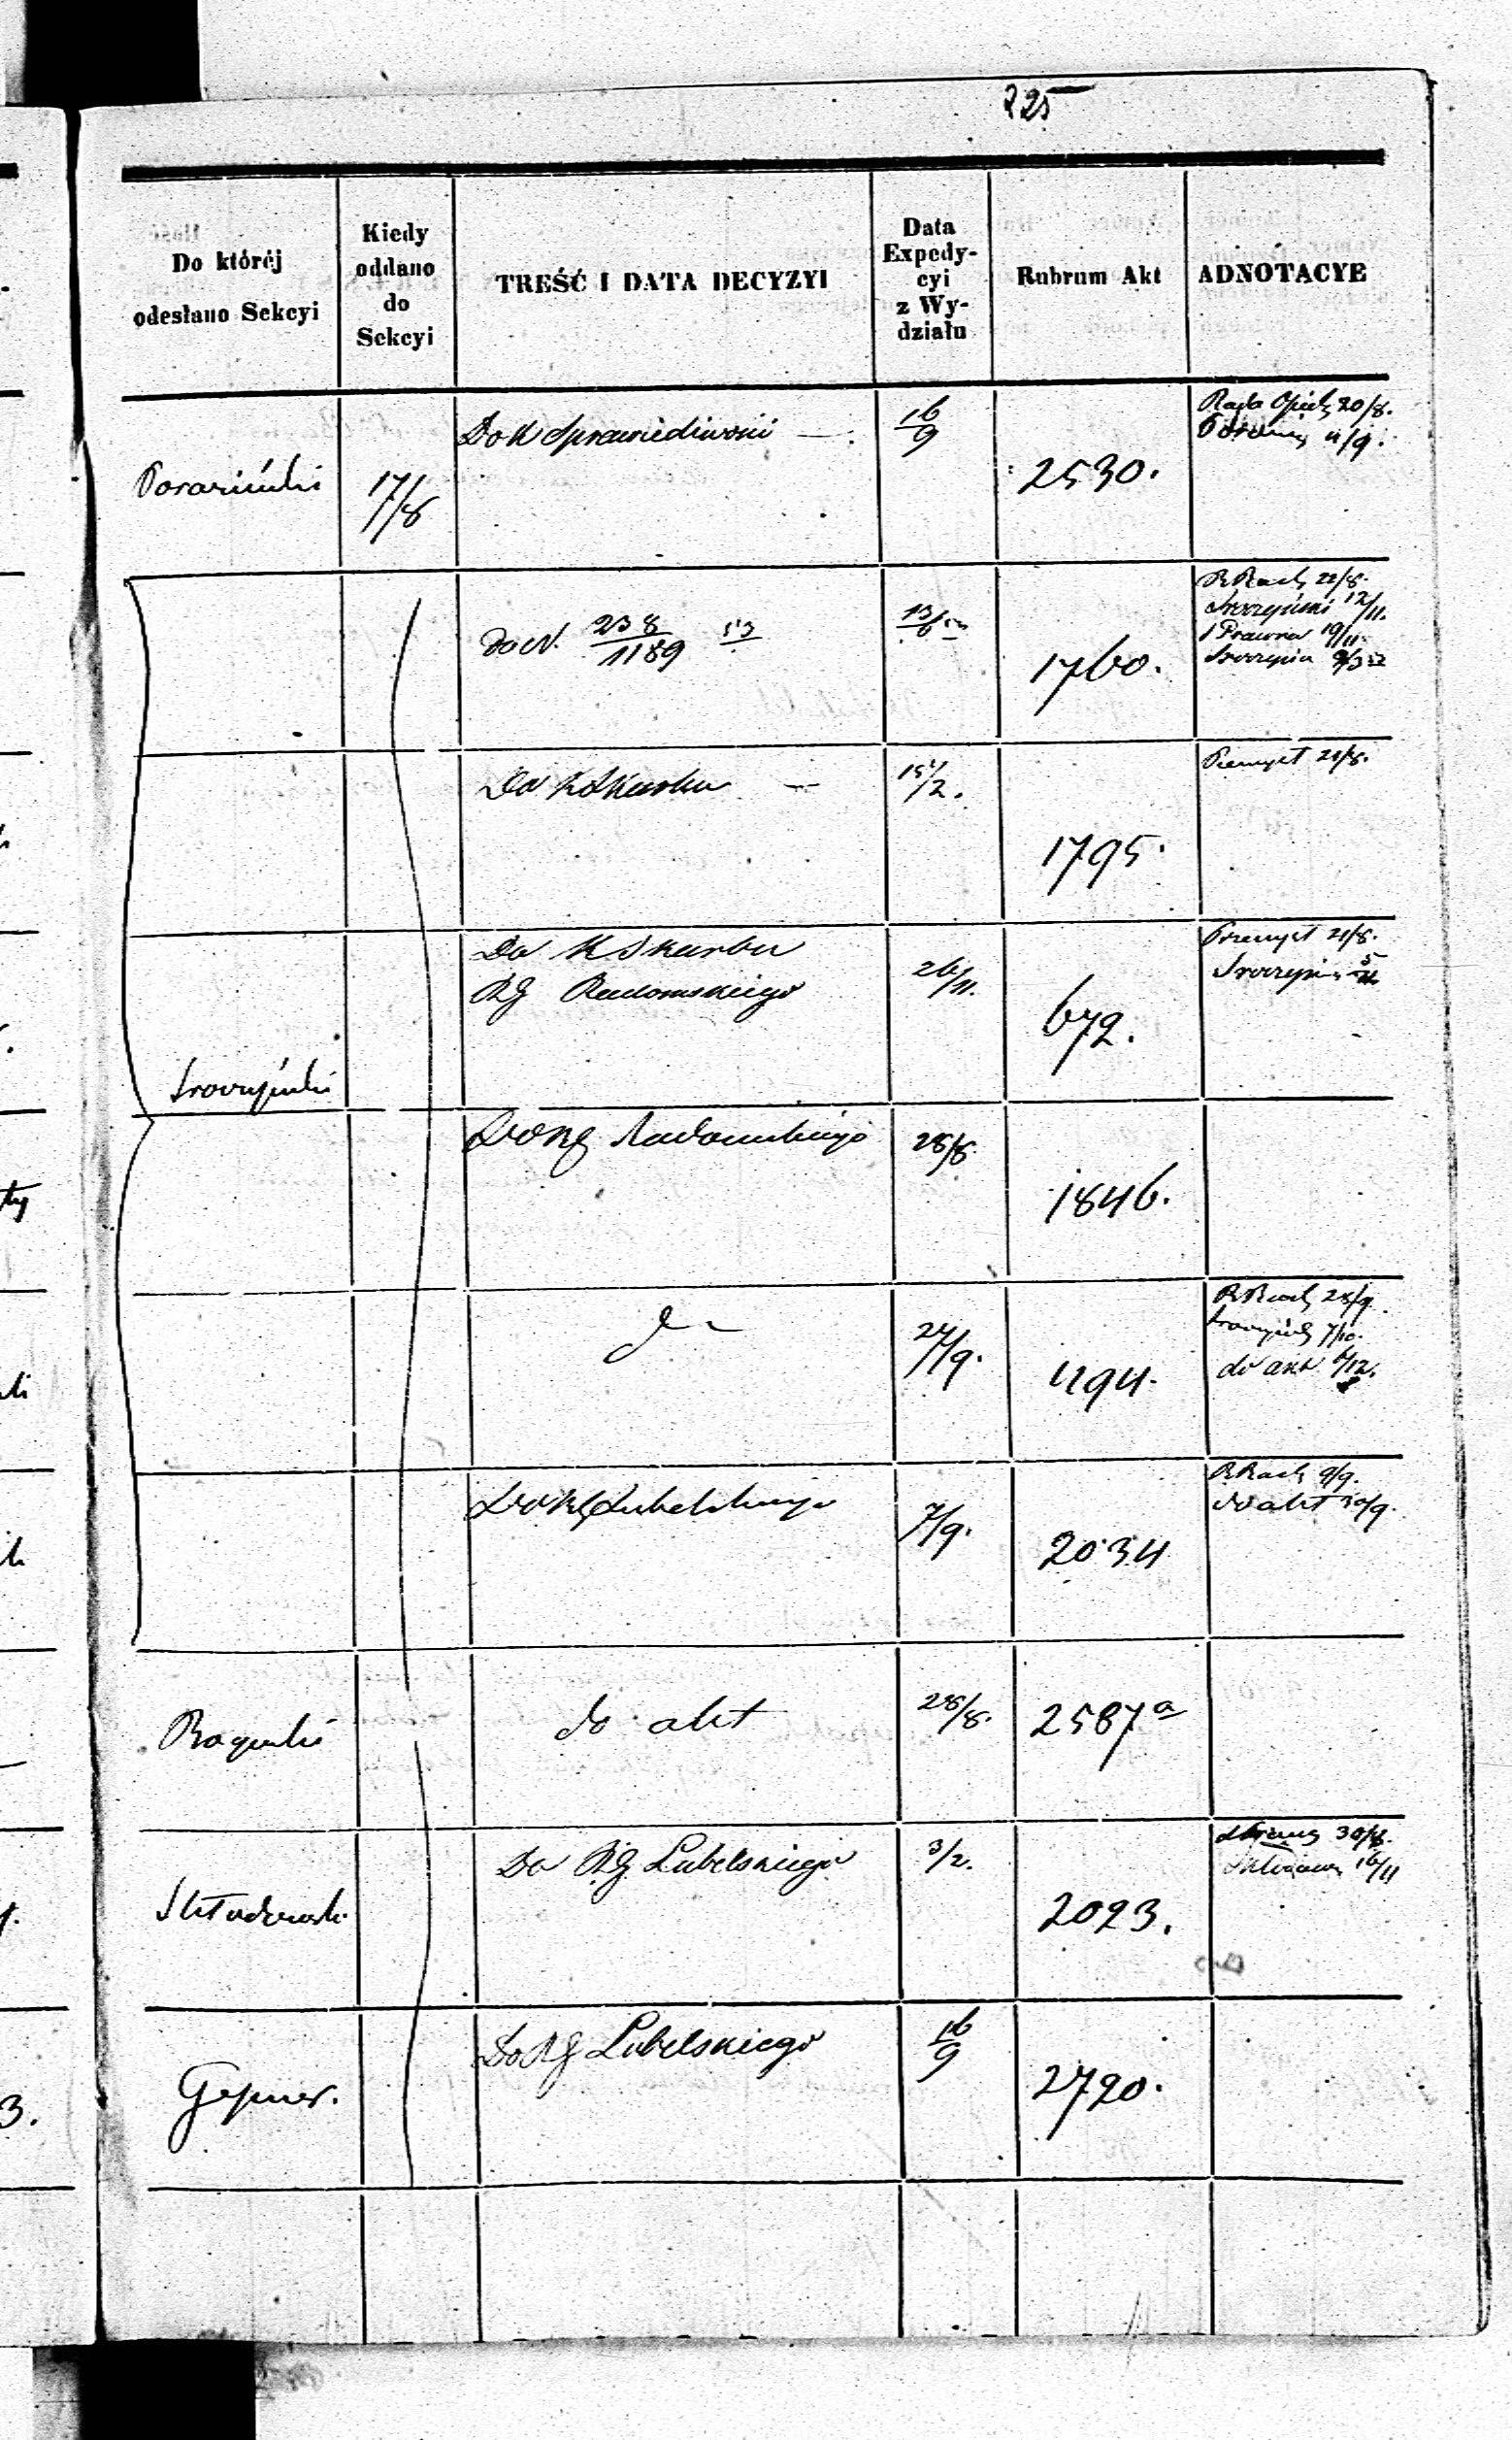 225
Do któréj
odesłano Sekcyi
Kiedy
oddano
do
Sekcyi
TREŚĆ I DATA DECYZYI
Data
Expedy-
cyi
z Wy-
działu
Rubrum Akt
ADNOTACYE
17/8
Do K Sprawiedliwości — 16/9
2530.
Rada Opiek 20/8.
11/9.
Do N. 238/1189 53
13/6 53
1760.
R Rach 22/8.
Sroczyński 12/11.
Prawna 19/11.
Do K Skarbu — 15/2.
1795.
Przemysł 21/8.
Do K Skarbu
RG Radomskiego
26/11.
672.
Przemysł 21/8.
Sroczyński
Do RG Radomskiego
28/8.
1846.
27/9.
494.
R Rach 28/9.
7/10.
do akt 6/12.
Do RG Lubelskiego
7/9.
2034
R Rach 9/9.
do akt 30/9.
do akt
28/8.
2587 a
Skłodowski
Do RG Lubelskiego
3/2.
2023.
30/8.
16/11
Gepner.
Do RG Lubelskiego
16/9
2720.